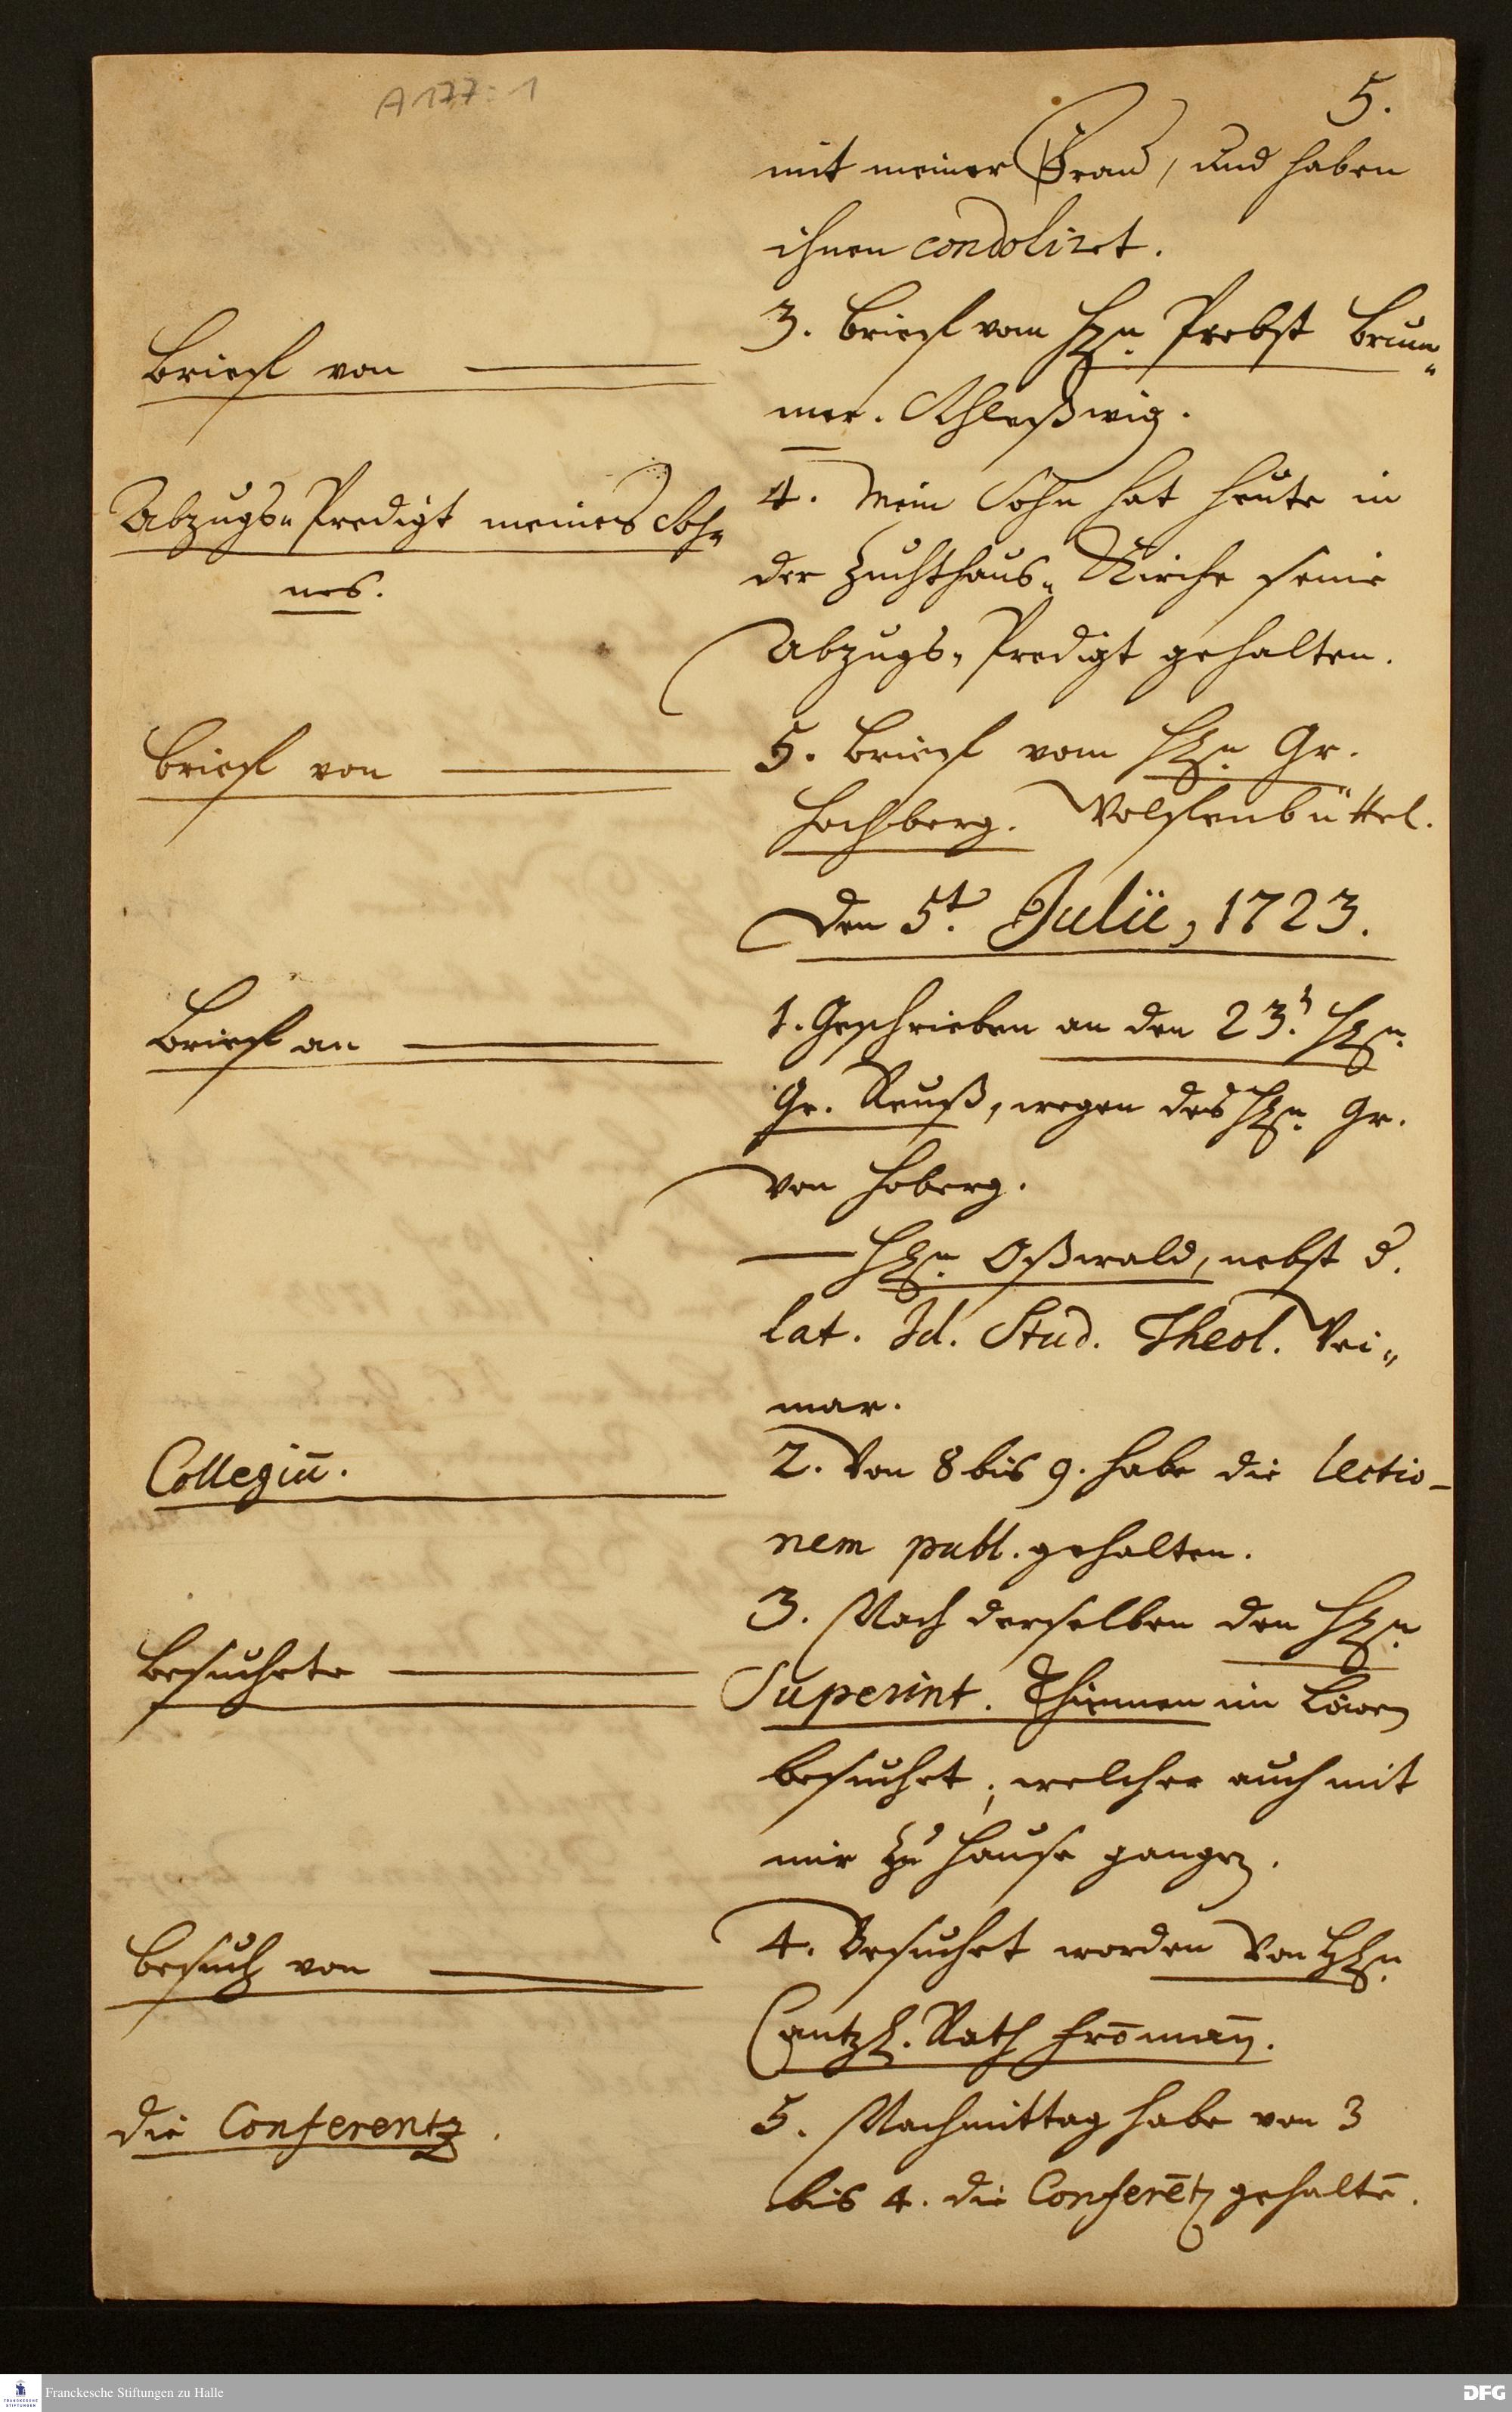 A 177 : 1
5.
mit meiner Frau, und haben
ihnen condoliret.
Brieff von
3. Brieff vom Hrn. Probst Brum„
mer. Schleßwig.
Abzugs„Predigt meines Soh„
nes.
4. Mein Sohn hat heute in
der Zuchthaus„Kirche seine
Abzugs„Predigt gehalten.
Brieff von
5. Brieff vom Hrn. Gr.
Hochberg. Wolffenbüttel.
Den 5t. Julii, 1723.
Brieff an
1. Geschrieben an den 23. Hrn.
Gr. Reuß, wegen des Hrn. Gr.
von Hoberg.
— Hrn. Oßwald, nebst d.
lat. Id. Stud. Theol. Wei„
mar.
Collegiū.
2. Von 8 bis 9. habe die lectio-
nem publ. gehalten.
Besuchete
3. Nach derselben den Hrn.
Superint. Thümmen im Löwen
besuchet, welcher auch mit
mir zu Hause gangen.
Besuch von
4. Besuchet worden von Hrn.
Cantzl. Rath Fromān.
die Conferentz.
5. Nachmittag habe von 3
bis 4. die Conferētz gehaltē.
Franckesche Stiftungen zu Halle
DFG